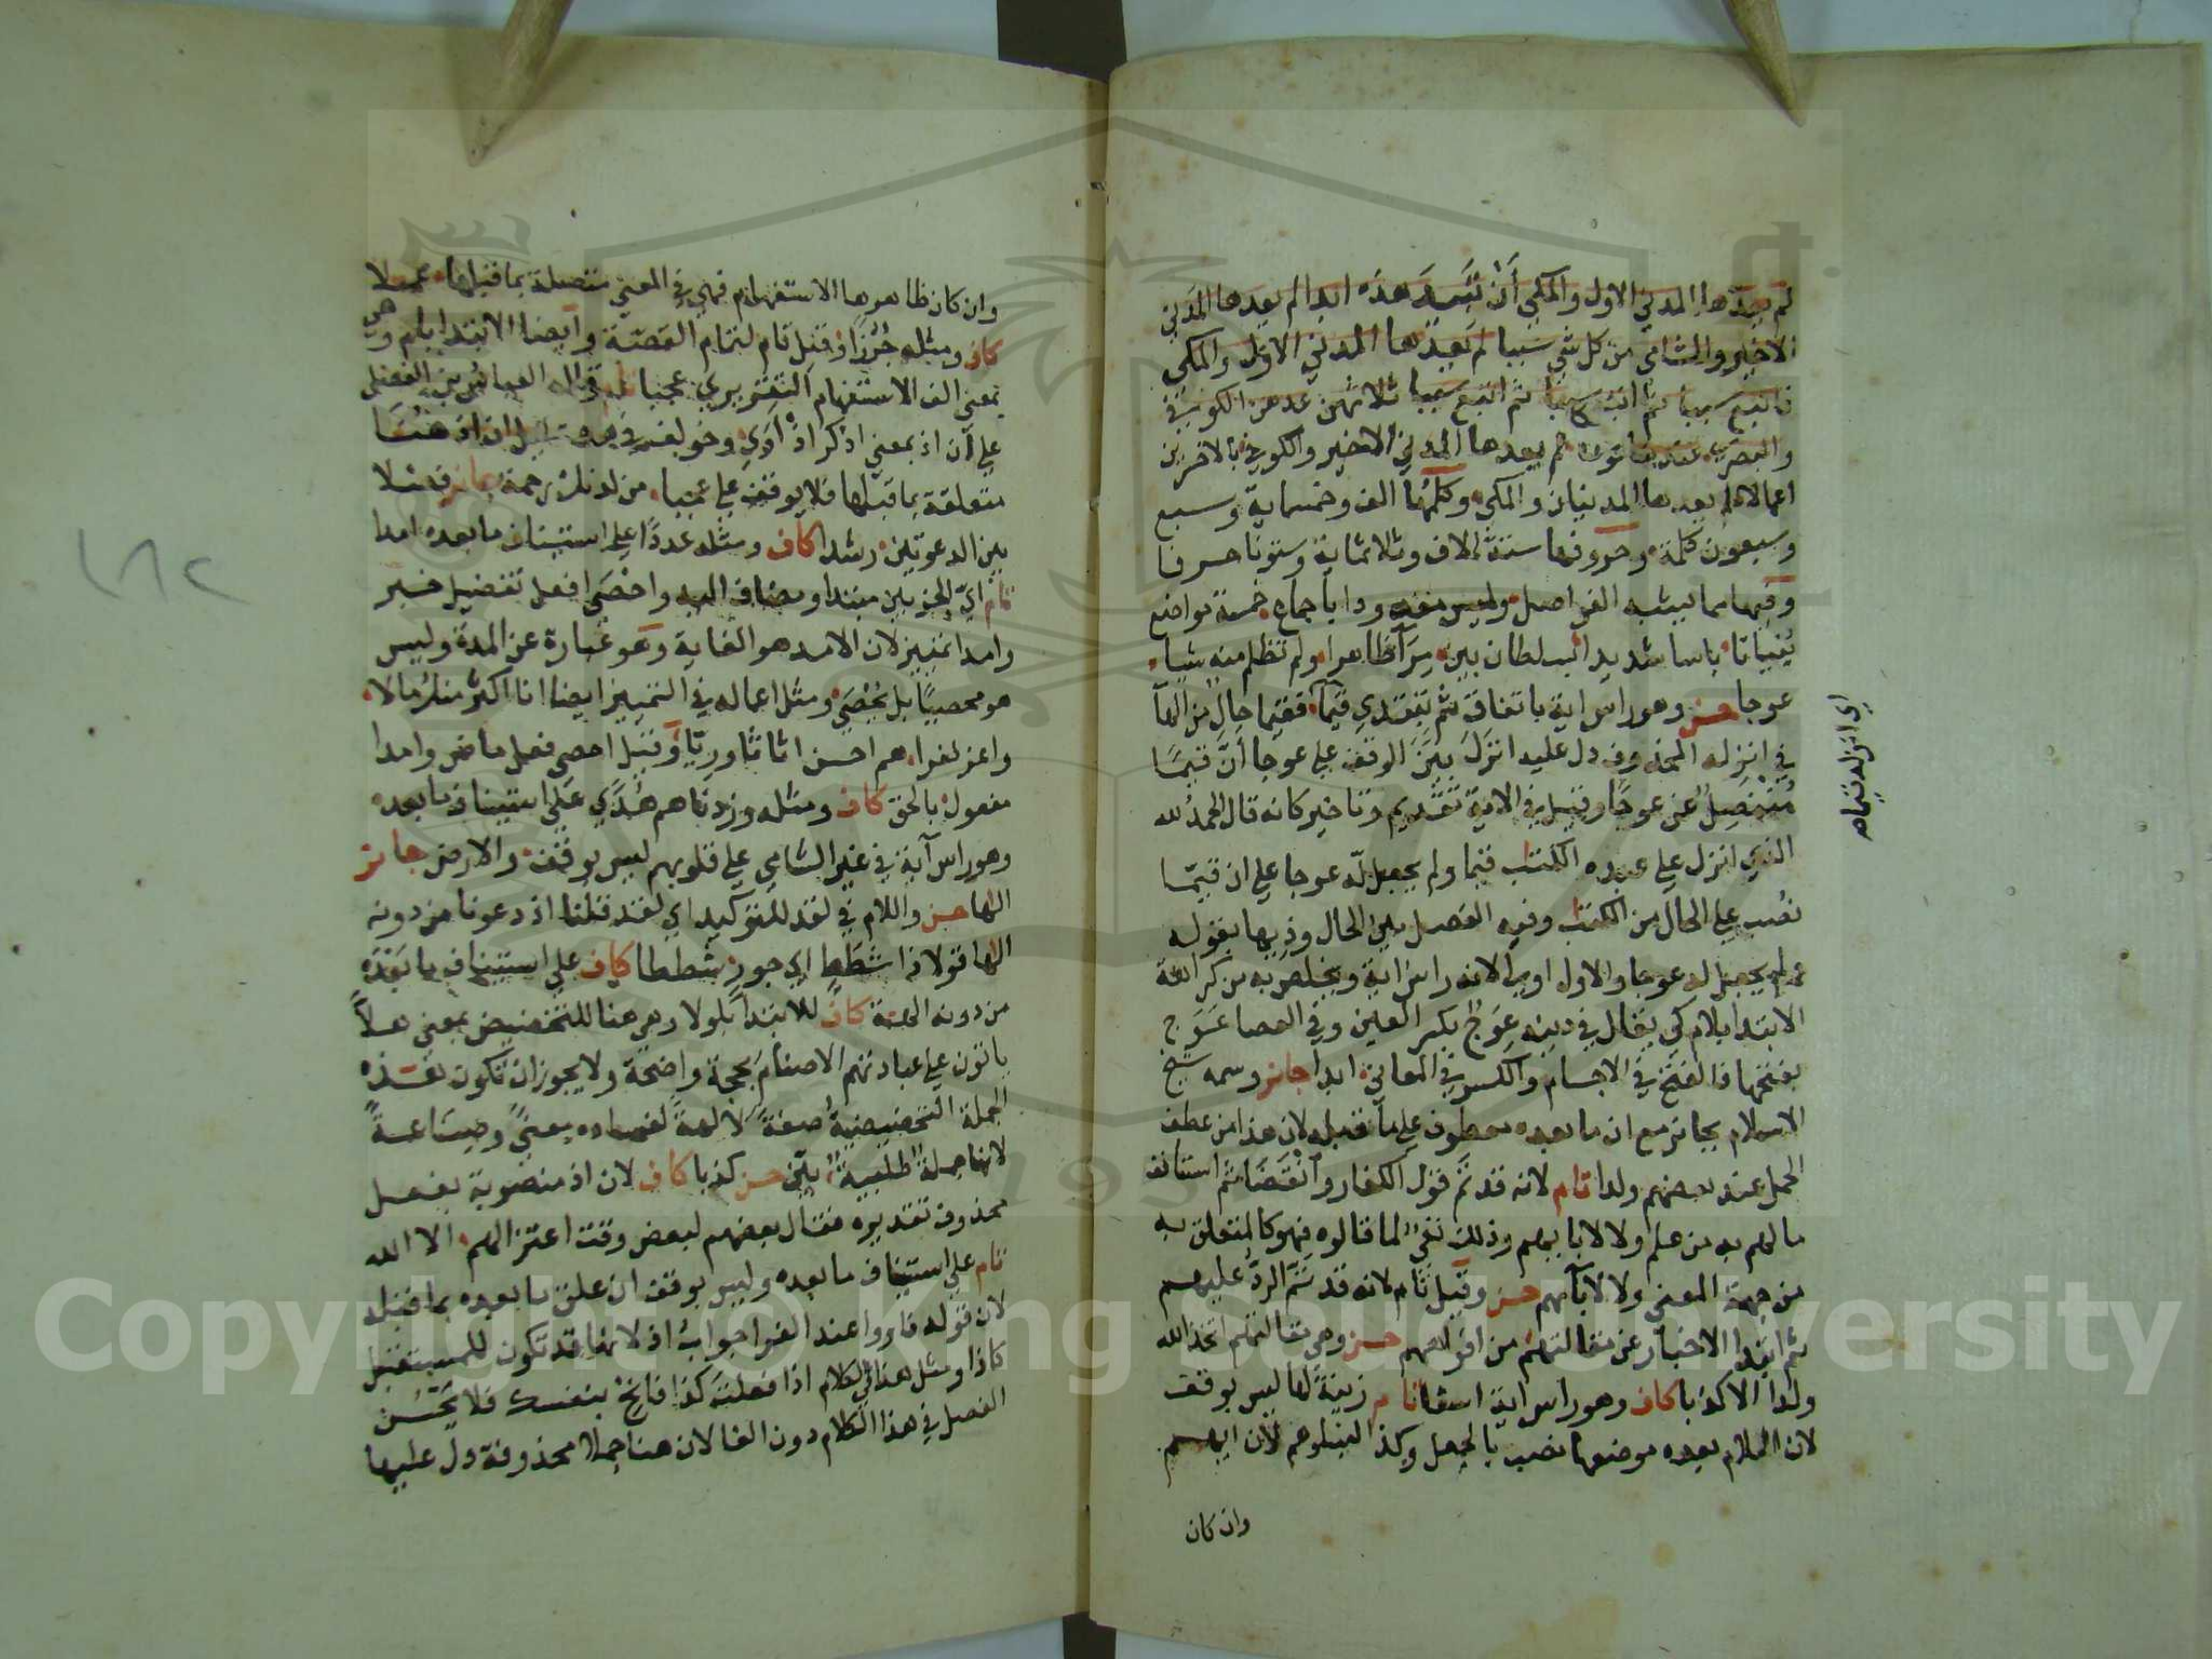 لم يعدها المدني الاول والمكي أن تبيد هذه ابدا لم يعدها المدني
الاخير والشامي من كل شي سببا لم يعدها المدني الاول والمكي
فاتبع سببا ثم اتبع سببا ثم اتبع سببا ثلاثهن عدهن الكوفي
والبصري عندها قوما لم يعدها المدني الاخير والكوفي بالاخرين
اعمالا لم يعدها المدنيان والمكي وكلمها الف وخمسماية وسبع
وسبعون كلمة وحروفها ستة الاف وثلاثماية وستون حرفا
وفيها مما يشبه الفواصل وليس معدودا باجماع خمسة مواضع
بنيانا باسا شديدا بسلطان بين مرآ ظاهرا ولم تظلم منه شيا
عوجا حسن وهو راس اية باتفاق ثم تبتدي قيما فقيما حال من الها
في انزله المحذوف دل عليه انزل بين الوقف على عوجا أن قيما
منفصل عن عوجا وقيل في الاية تقديم وتاخير كانه قال الحمد لله
الذي انزل على عبده الكتب قيما ولم يجعل له عوجا على ان قيما
نصب على الحال من الكتب وفيه الفصل بين الحال وذيها بقوله
ولم يجعل له عوجا والاول اولى لانه راس اية ويخلص به من كراهة
الابتدا بلام كي يقال في دينه عوج بكسر العين وفي العصا عوج
بفتحها فالفتح في الاجسام والكسر في المعاني ابدا جائز وسمه شيخ
الاسلام بجائز مع ان ما بعده معطوف على ما قبله لان هذا من عطف
الجمل عند بعضهم ولدا تام لانه قد تم قول الكفار وانقضا ثم استانف
ما لهم به من علم ولا لابايهم وذلك نفي لما قالوه فهو كالمتعلق به
من جهة المعنى ولا لآبآئهم حسن وقيل تام لانه قد تم الرد عليهم
ثم ابتدا الاخبار عن مقالتهم من افواههم حسن وهي مقالتهم اتخذ الله
ولدا الا كذبا كاف وهو راس اية اسفا تام زينة لها ليس بوقف
لان اللام بعده موضعها نصب بالجعل وكذا لنبلوهم لان ايهم
وان كان
اي انزله قيما ه
وان كان ظاهرها الاستفهام فهي في المعنى متصلة بما قبلها عملا
كاف ومثله جرزا وقيل تام لتمام القصة وايضا الابتدا بام وهي
بمعنى الف الاستفهام التقريري عجبا تام قاله العباس بن الفضل
على أن اذ بمعنى اذكر اذ أوى وخولف في هذا لان اذ هنا
متعلقة بما قبلها فلا يوقف على عجبا من لدنك رحمة جائز فصلا
بين الدعوتين رشدا كاف ومثله عددا على استيناف ما بعده امدا
تام أي الحزبين مبتدا ومضاف اليه واحصى افعل تفضيل خبر
وامدا تمييز لان الامد هو الغاية وهو عبارة عن المدة وليس
هو محصيا بل يحصى ومثل اعماله في التمييز ايضا انا اكثر منك مالا
واعز نفرا هم احسن اثاثا وريا وقيل احصى فعل ماض وامدا
مفعول بالحق كاف ومثله وزدناهم هدى على استيناف ما بعده
وهو راس آية في غير الشامي على قلوبهم ليس بوقف والارض جائز
الها حسن واللام في لقد للتوكيد اي لقد قلنا اذ دعونا من دونه
الها قولا ذا شطط اي جور شططا كاف على استيناف ما بعده
من دونه الهة كاف للابتدا بلولا وهي هنا للتحضيض بمعنى هلا
ياتون على عبادتهم الاصنام بحجة واضحة ولا يجوز ان تكون هذه
الجملة التحضيضية صفة لالهة لفساده معنى وصناعة
لانها جملة طلبية بين حسن كذبا كاف لان اذ منصوبة بفعل
محذوف تقديره فقال بعضهم لبعض وقت اعتزالهم الا الله
تام على استيناف ما بعده وليس بوقف ان علق ما بعده بما قبله
لان قوله فاووا عند الفرا جواب اذ لانها قد تكون للمستقبل
كاذا ومثل هذا في الكلام اذا فعلت كذا فانج بنفسك فلا يحسن
الفصل في هذا الكلام دون الفا لان هنا جملا محذوفة دل عليها
١٨٢
Copyright © King Saud University